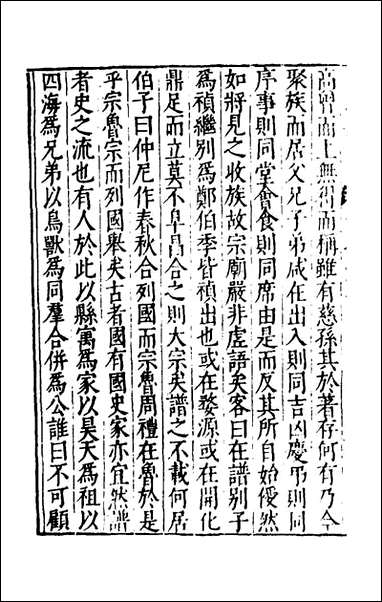 高曾而上無得而稱雖有慈孫其於著存何有乃今
聚族而居父兄子弟咸在出入則同吉凶慶弔則同
序事則同堂會食則同席由是而反其所自始僾然
如將見之收族故宗廟嚴非虛語矣客曰在譜别子
爲禎繼别爲鄭伯季皆禎出也或在婺源或在開化
鼎足而立莫不阜昌合之則大宗矣譜之不載何居
伯子曰仲尼作春秋合列國而宗魯周禮在魯於是
乎宗魯宗而列國舉矣古者國有國史家亦宜然譜
者史之流也有人於此以縣㝢爲家以昊天爲祖以
四海爲兄弟以鳥獸爲同羣合併爲公誰曰不可顧